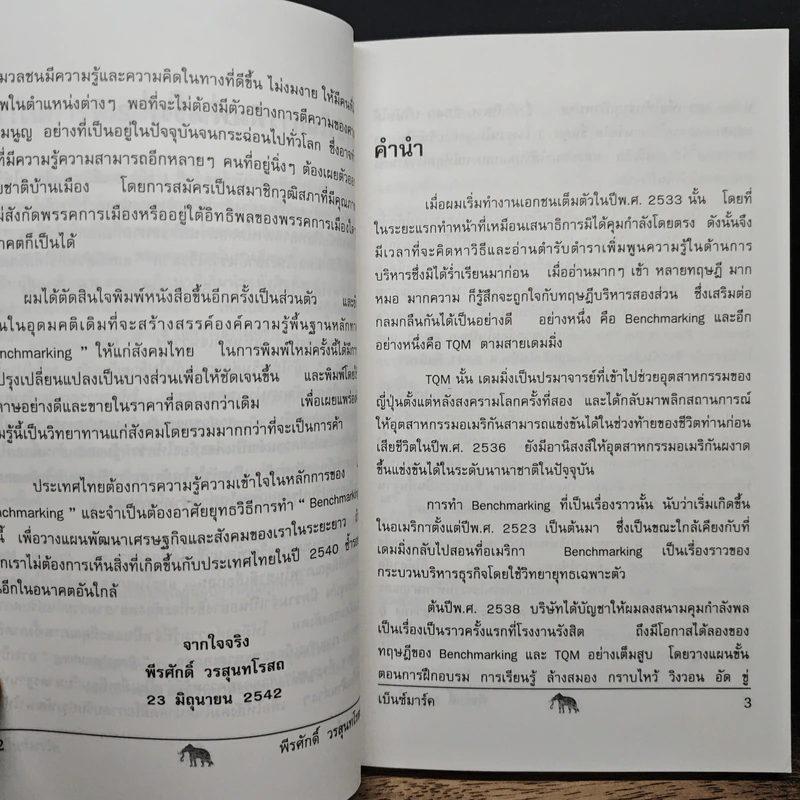 มวลชนมีความรู้และความคิดในทางที่ดีขึ้น ไม่งมงาย ให้มีคนที่
พในตำแหน่งต่างๆ พอที่จะไม่ต้องมีตัวอย่างการตีความของ
มนูญ อย่างที่เป็นอยู่ในปัจจุบันจนกระฉ่อนไปทั่วโลก ซึ่งอาจ
ที่มีความรู้ความสามารถอีกหลายๆ คนที่อยู่นิ่งๆ ต้องเผยตัวออ
ยชาติบ้านเมือง โดยการสมัครเป็นสมาชิกวุฒิสภาที่มีคุณภา
ม่สังกัดพรรคการเมืองหรืออยู่ใต้อิทธิพลของพรรคการเมืองใด
าคตก็เป็นได้
ผมได้ตัดสินใจพิมพ์หนังสือขึ้นอีกครั้งเป็นส่วนตัว
นในอุดมคติเดิมที่จะสร้างสรรค์องค์ความรู้พื้นฐานหลักทา
nchmarking ” ให้แก่สังคมไทย ในการพิมพ์ใหม่ครั้งนี้ได้มีกา
ปรุงเปลี่ยนแปลงเป็นบางส่วนเพื่อให้ชัดเจนขึ้น และพิมพ์โดย
ดาษอย่างดีและขายในราคาที่ลดลงกว่าเดิม เพื่อเผยแพร่อง
มรู้นี้เป็นวิทยาทานแก่สังคมโดยรวมมากกว่าที่จะเป็นการค้า
ประเทศไทยต้องการความรู้ความเข้าใจในหลักการของ “
nchmarking ” และจำเป็นต้องอาศัยยุทธวิธีการทำ “ Benchmarkin
นี้ เพื่อวางแผนพัฒนาเศรษฐกิจและสังคมของเราในระยะยาว
กเราไม่ต้องการเห็นสิ่งที่เกิดขึ้นกับประเทศไทยในปี 2540 ซ้ำรอย
นอีกในอนาคตอันใกล้
จากใจจริง
พีรศักดิ์ วรสุนทโรสถ
23 มิถุนายน 2542
2 พีรศักดิ์ วรสุนทโรส
คำนำ
เมื่อผมเริ่มทำงานเอกชนเต็มตัวในปีพ.ศ. 2533 นั้น โดยที่
ในระยะแรกทำหน้าที่เหมือนเสนาธิการมิได้คุมกำลังโดยตรง ดังนั้นจึง
มีเวลาที่จะคิดหาวิธีและอ่านตำรับตำราเพิ่มพูนความรู้ในด้านการ
บริหารซึ่งมิได้ร่ำเรียนมาก่อน เมื่ออ่านมากๆ เข้า หลายทฤษฎี มาก
หมอ มากความ ก็รู้สึกจะถูกใจกับทฤษฎีบริหารสองส่วน ซึ่งเสริมต่อ
กลมกลืนกันได้เป็นอย่างดี อย่างหนึ่ง คือ Benchmarking และอีก
อย่างหนึ่งคือ TQM ตามสายเดมมิ่ง
TQM นั้น เดมมิ่งเป็นปรมาจารย์ที่เข้าไปช่วยอุตสาหกรรมของ
ญี่ปุ่นตั้งแต่หลังสงครามโลกครั้งที่สอง และได้กลับมาพลิกสถานการณ์
ให้อุตสาหกรรมอเมริกันสามารถแข่งขันได้ในช่วงท้ายของชีวิตท่านก่อน
เสียชีวิตในปีพ.ศ. 2536 ยังมีอานิสงส์ให้อุตสาหกรรมอเมริกันผงาด
ขึ้นแข่งขันได้ในระดับนานาชาติในปัจจุบัน
การทำ Benchmarking ที่เป็นเรื่องราวนั้น นับว่าเริ่มเกิดขึ้น
ในอเมริกาตั้งแต่ปีพ.ศ. 2523 เป็นต้นมา ซึ่งเป็นขณะใกล้เคียงกับที่
เดมมิ่งกลับไปสอนที่อเมริกา Benchmarking เป็นเรื่องราวของ
กระบวนบริหารธุรกิจโดยใช้วิทยายุทธเฉพาะตัว
ต้นปีพ.ศ. 2538 บริษัทได้บัญชาให้ผมลงสนามคุมกำลังพล
เป็นเรื่องเป็นราวครั้งแรกที่โรงงานรังสิต ถึงมีโอกาสได้ลองของ
ทฤษฎีของ Benchmarking และ TQM อย่างเต็มสูบ โดยวางแผนขั้น
ตอนการฝึกอบรม การเรียนรู้ ล้างสมอง กราบไหว้ วิงวอน อัด ขู่
เบ็นช์มาร์ค 3